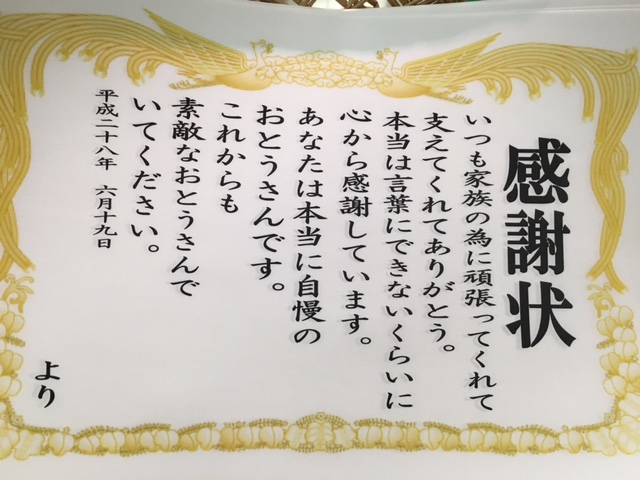 感謝状
いつも家族の為に頑張ってくれて
支えてくれてありがとう。
本当は言葉にできないくらいに
心から感謝しています。
あなたは本当に自慢の
おとうさんです。
これからも
素敵なおとうさんで
いてください。
平成二十八年 六月十九日
より